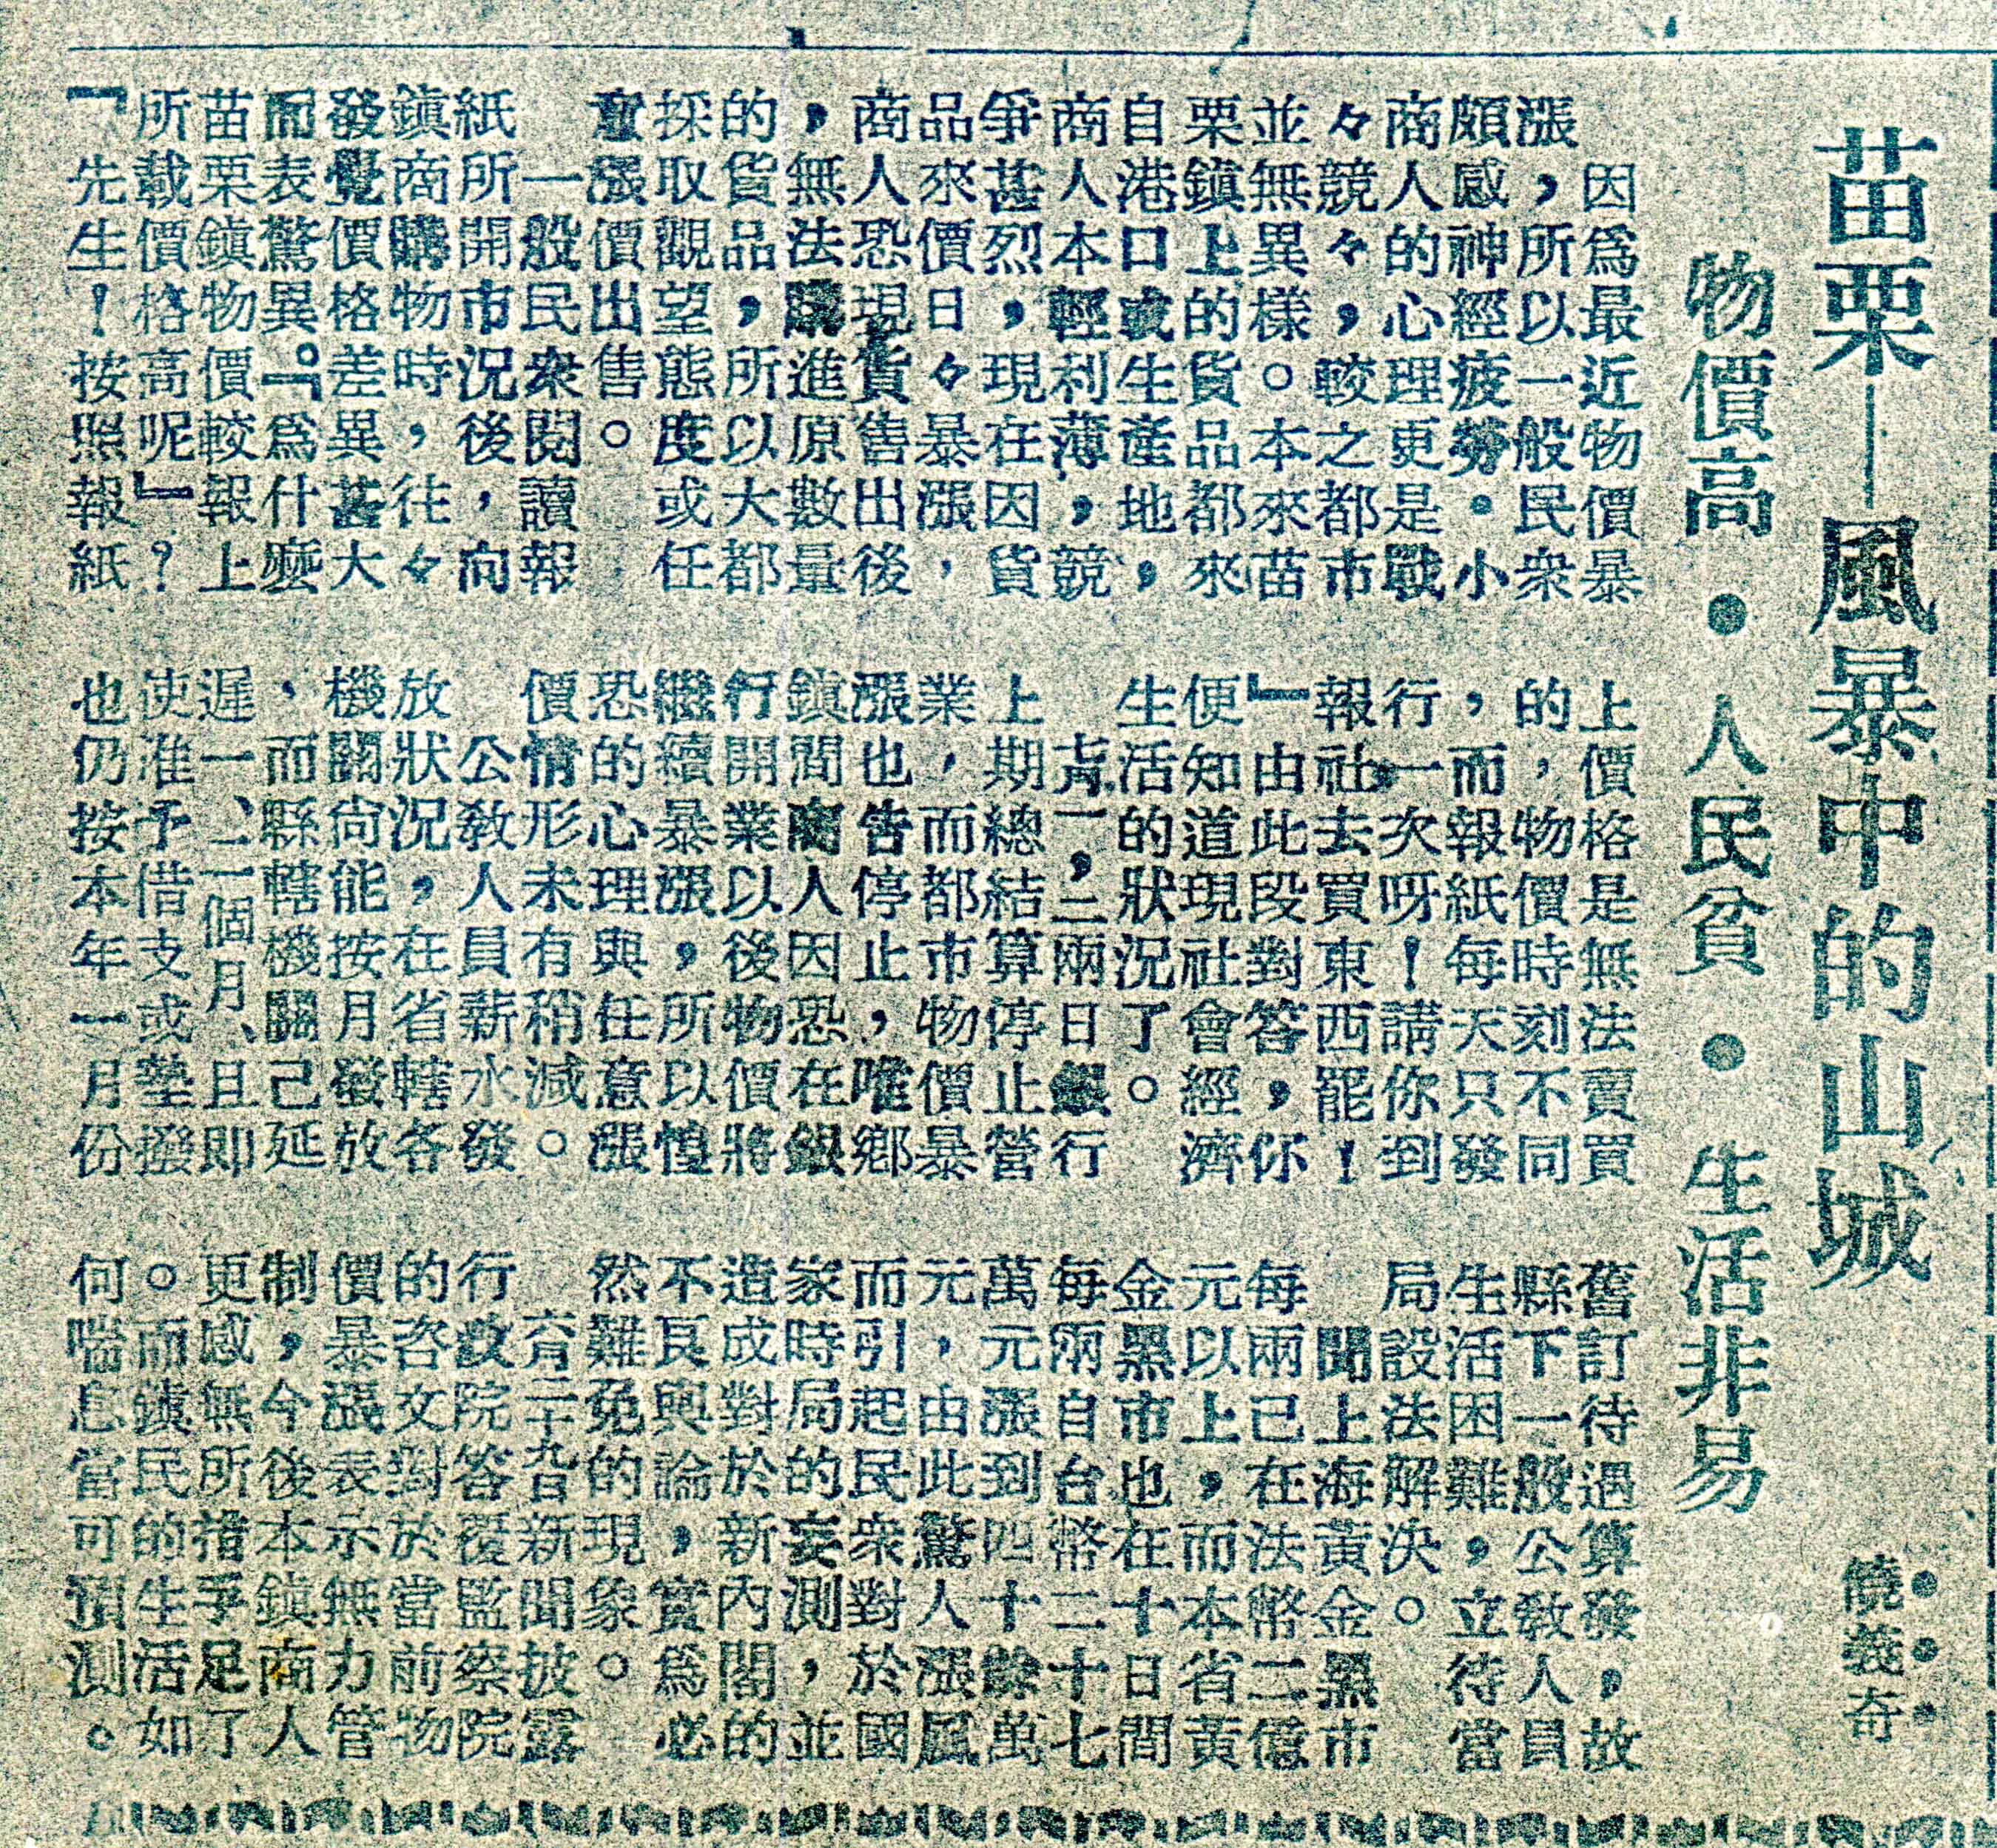 苗栗——風暴中的山城
饒義奇
物價高・人民貧・生活非易
因爲最近物價暴
漲，所以一般民衆
頗感神經疲勞。小
商人的心理更是戰
々競々，較之都市
並無異樣。本來苗
栗鎮上的貨品都來
自港口或生產地，
商人本輕利薄，競
爭甚烈，現在因貨
品來價日々暴漲，
商人恐現貨售出後
，無法購進原數量
的貨品，所以大都
採取觀望態度或任
意漲價出售。
一般民衆閱讀報
紙所開市況後，向
鎮商購物時，往々
發覺價格差異甚大
而表驚異。「爲什麼
苗栗鎮物價較報上
所載價格高呢」？
「先生！按照報紙
上價格是無法賣買
的，物價時刻不同
，而報紙每天只發
行一次呀！講你到
報社去買東西罷！
」由此段對答，你
便知道現社會經濟
生活的狀況了。
七月一，二兩日銀行
上期總結算停止營
業，而都市物價暴
漲也吿停止，唯鄉
鎮間商人因恐在銀
行開業以後物價將
繼續暴漲，所以惶
恐的心理與任意漲
價情形未有稍減。
公敎人員薪水發
放狀況，在省轄各
機關尙能按月發放
，而縣轄機關己延
遲一、二個月、且即
使准予借支或墊撥
也仍按本年一月份
舊訂待遇算發，故
縣下一般公敎人員
生活困難，立待當
局設法解決。
聞上海黃金黑市
每兩己在法幣二億
元以上，而本省黃
金黑市也在十日間
每兩自台幣二十七
萬元漲到四十餘萬
元，由此驚人漲風
而引起民衆對於國
家時局的妄測，並
造成對於新內閣的
不良輿論，實爲必
然難免的現象。
六月二十九日新聞披露
行政院答覆監察院
的咨文對於當前物
價暴漲表示無力管
制，今後本鎮商人
更感無所措手足了
。而鎮民的生活如
何喘息當可預測。